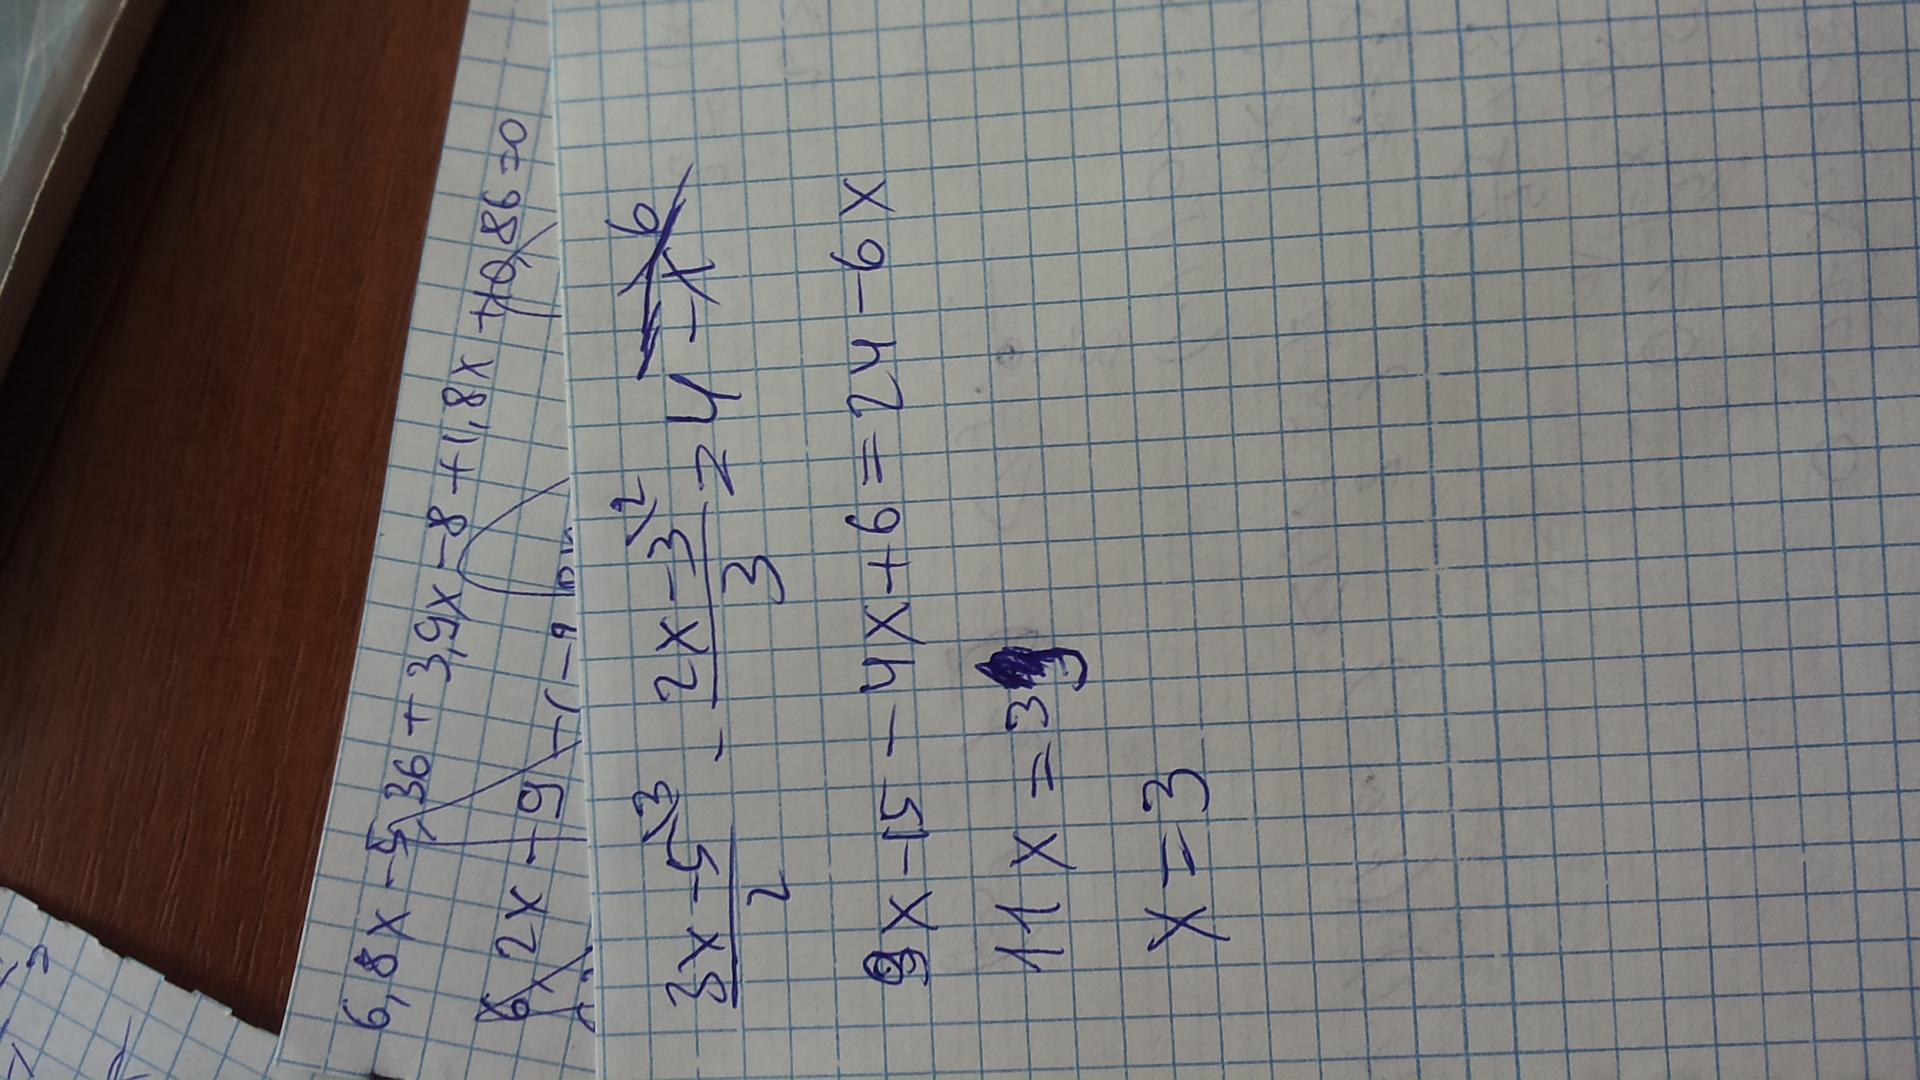 6,8x-5,36+3,9x-8+1,8x+10,86=0
3x-5\3 / 2 - 2x-3\2 / 3 = 4-x
9x-15-4x+6=24-6x
11x=33
x=3